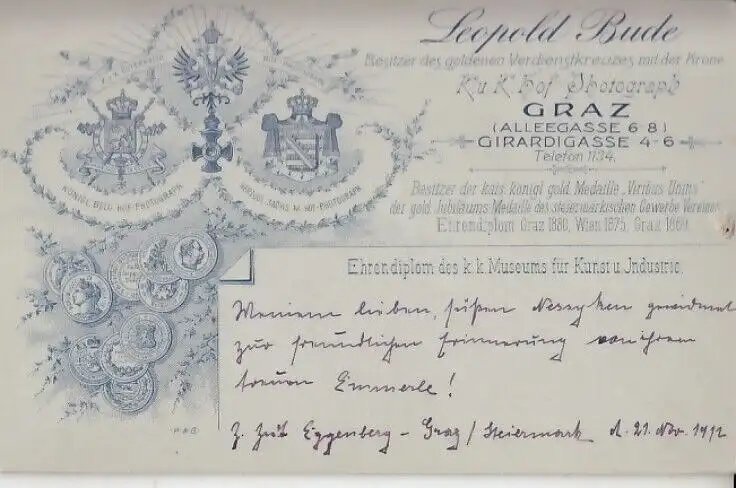 Leopold Bude
Besitzer des goldenen Verdienstkreuzes mit der Krone
K u K Hof Photograph
GRAZ
(ALLEEGASSE 6 8)
GIRARDIGASSE 4-6
Telefon 1134.
KÖNIGL BELG. HOF-PHOTOGRAPH
HERZOGL. SACHS. M. HOF-PHOTOGRAPH
Besitzer der kais. königl gold. Medaille „Viribus Unitis"
der gold. Jubiläums Medaille des steiermärkischen Gewerbe Vereines
Ehrendiplom Graz 1880, Wien 1875, Graz
Ehrendiplom des k. k. Museums für Kunst u Jndustrie.
Meinem lieben, süßen gewidmet
zur freundlichen Erinnerung von ihrem
treuen Emmerle!
Z. Zeit Eggenberg - Graz / Steiermark d. 21. Nov. 1912